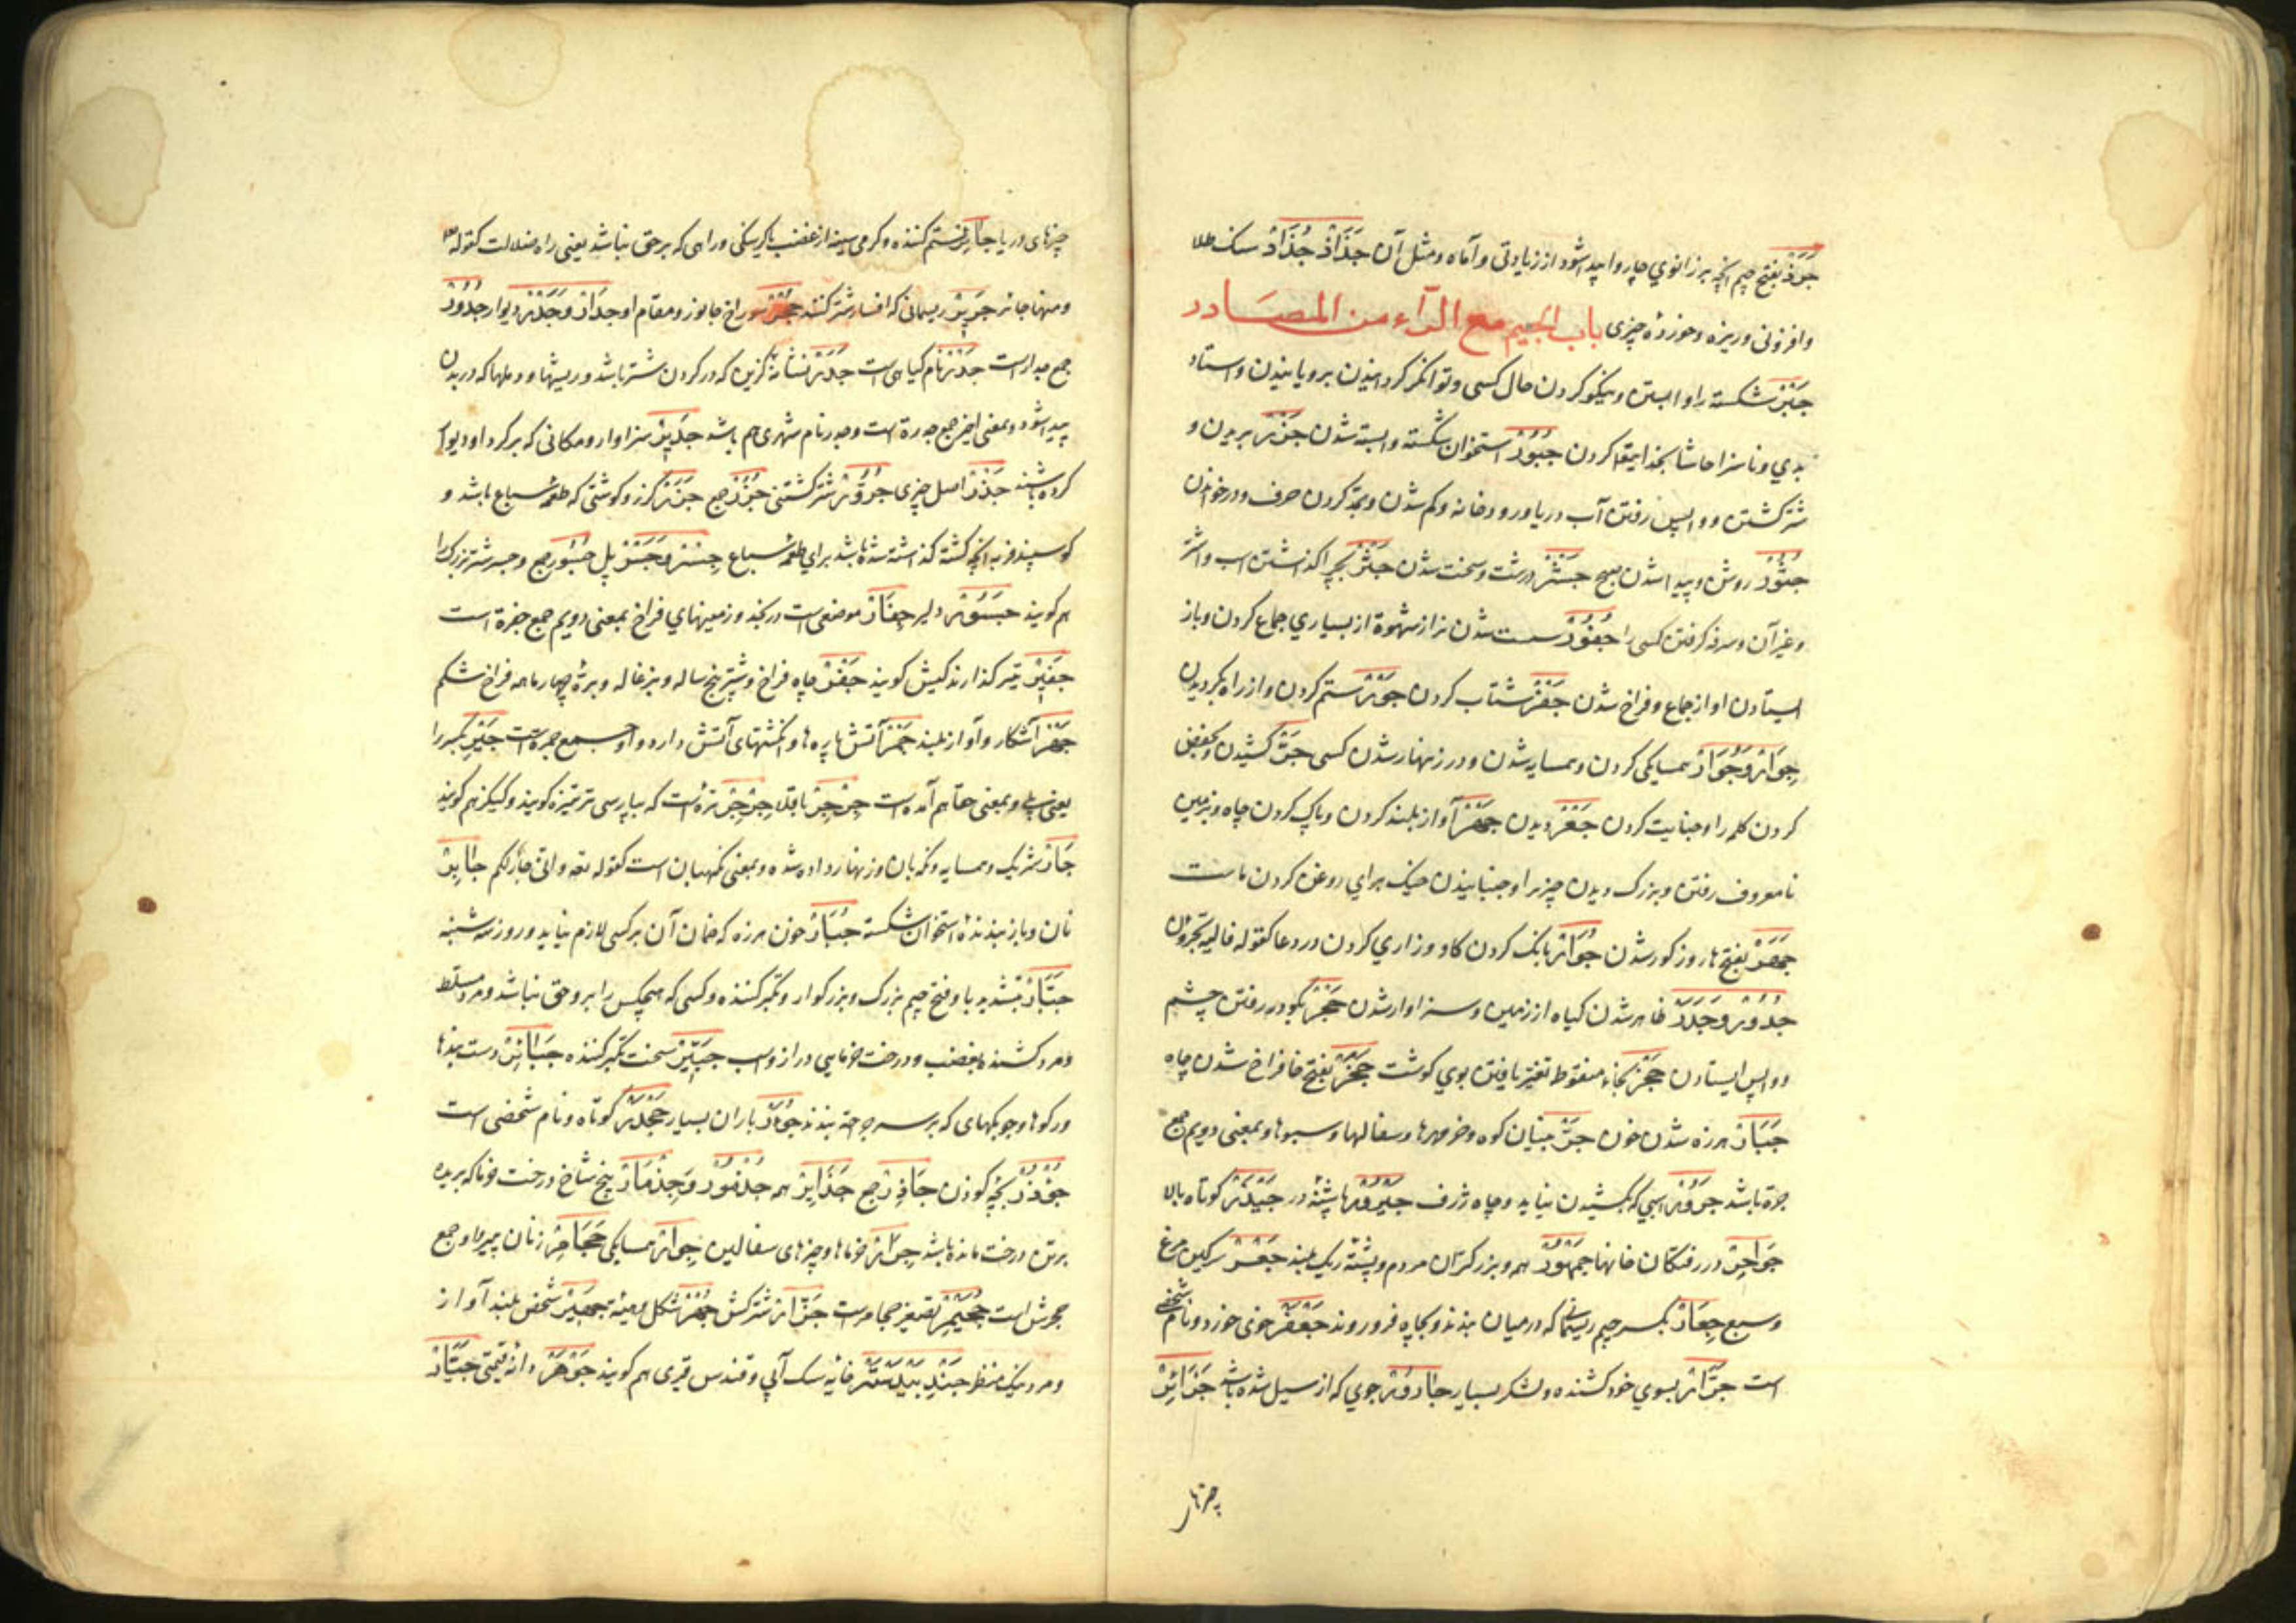 جَرَذ بفتح جیم آنچه بر زانوی چاروا پیدا شود از زیادتی و آماه و مثل آن جَذَاذ جُذَاذ سنک طلا
و افزونی و ریزه و خورده چیزی باب الجیم مع الراء من المصادر
جَبْر شکسته را وابستن و نیکو کردن حال کسی و توانکر کردانیدن برویانیدن و استاد
بدی و ناسزا حاشا بخدا کردن جُبُوْر استخوان شکسته وابسته شدن جَزْر بریدن و
شتر کشتن و واپس رفتن آب دریا و رودخانه و کم شدن و بجر کردن حرف و درخواندن
جُشُوْر روشن و پیدا شدن صبح جَشْر درشت و سخت شدن جَشْر بچرا کذاشتن اسب و اشتر
و غیر آن و سرفه کرفتن کسی را جُفُوْر سست شدن نر از شهوة از بسیاری جماع کردن و باز
ایستادن او از جماع و فراخ شدن جَفْز شتاب کردن جَوْر ستم کردن و از راه بکردیدن
جِوَار و جُوَار همسایکی کردن و همسایه شدن و در زنهار شدن کسی جَرّ کشیدن و بخفض
کردن کلمه را و جنایت کردن دیدن جَهْر آواز بلند کردن و پاک کردن چاه و بزمین
نامعروف رفتن و بزرک دیدن چیزیرا و جنبانیدن خیک برای روغن کردن ماست
جَهَر بفتح ها روز کور شدن جُوَار بانک کردن کاو و زاری کردن در دعا کقوله فالیه تجرون
جُدُوْر و جَدَر ظاهر شدن کیاه از زمین و سزاوار شدن جَحْر بکو در رفتن چشم
و واپس ایستادن جَخْر بخاء منقوط تغیر یافتن بوی کوشت جَخَر بفتح خا فراخ شدن چاه
جُبَار هرزه شدن خون جَرّ بنیان کوه و خرمهرها و سفالها و سبوها و بمعنی دویم جمع
جره باشد جَرُوْر اسبی که بکشیدن نیاید و چاه ژرف جَیْدَر کوتاه بالا
در رفتکان خانها جُمْهُوْر همه و بزرکتران مردم و پشته ریک بلند جَعْر سرکین مرغ
و سبع جِعَار بکسر جیم ریسمانی که در میان بندند و بچاه فرو روند جَعْفَر جوی خورد و نام شخصی
است جَرَّار بسوی خود کشنده و لشکر بسیار جَارُوْر جوی که از سیل شده باشد جَزَائِر
چیزهای
چیزهای دریا جَائِر ستم کننده و کرمی سینه از غضب یا کرسنکی و راهی که بر حق نباشد یعنی راه ضلالت کقوله تع
و منها جائر جَرِیْر ریسمانی که افسار شتر کنند جُحْر سوراخ جانور و مقام او جِدَار و جَدْر دیوار جُدُوْر
جمع جدار است جَدْر نام کیاهی است جُدَر نشانه کزیدن که در کردن شتر باشد و ریشها و دملها که در بدن
پیدا شود و بمعنی اخیر جمع جدره است و جدر نام شهری هم باشد جَدِیْر سزاوار و مکانی که بر کرد او دیوار
کرده باشند جَذْر اصل چیزی جَزُوْر شتر کشتنی جُزُر جمع جَزَر کزر و کوشتی که طعمه سباع باشد و
کوسپند فربه آنچه کشته کذاشته شده باشد برای طعمه سباع جِسْر و جَسْر پل جُسُوْر جمع و جسر شتر بزرک را
هم کویند جَسُوْر دلیر جِفَار موضعی است در نجد و زمینهای فراخ بمعنی دویم جمع جفره است
جَفِیْر تیر کذار ند کیش کویند جَفْر چاه فراخ و شتر پنج ساله و بزغاله و بره چهار ماهه فراخ شکم
جَهْر آشکار و آواز بلند جَمْر آتش پاره ها و انکشتهای آتش دارد و او جمع جمره است جَیْرِ بکسر را
یعنی بلی و بمعنی حقا هم آمده است جِرْجِر باقلا جِرْجِیْر تره است که بپارسی تره تیزه کویند و کیکز هم کویند
جَار شریک و همسایه و نکهبان و زنهار داده شده و بمعنی نکهبان است کقوله تعه و انی جار لکم جَابِر
نان و باز بندنده استخوان شکسته جُبَار خون هرزه که ضمان آن بر کسی لازم نیاید و روز سه شنبه
جَبَّار بتشدید با و فتح جیم بزرک و بزرکوار و تکبر کننده و کسی که هیچکس را برو حق نباشد و مرد مسلط
و مرد کشنده بغضب و درخت خرمایی دراز و اسب جِبِّیْر سخت تکبر کننده جَبَائِر دست بندها
ورکوها و چوبکهای که بر سر جراحت بندند باران بسیار جَحْدَر کوتاه و نام شخصی است
جُؤْذُر بچه کوزن جَآذِر جمع جَذَامِیْر همه جُذْمُوْر و جِذْمَار بیخ شاخ درخت خرما که بریده
بر تن درخت مانده باشد جِرَار خرماها و چیزهای سفالین جِوَار همسایکی زنان پیر و او جمع
جحرش است جُحَیْمِر تصغیر جَزَّار شتر کش جُهْر شکل و هیئة جَهِیْر شخص بلند آواز
و مرد نیک منظر جُنْدِ بَیْدَسْتَر خایه سک آبی و قندس قیری هم کویند جَوْهَر دانه قیمتی جَیَّار